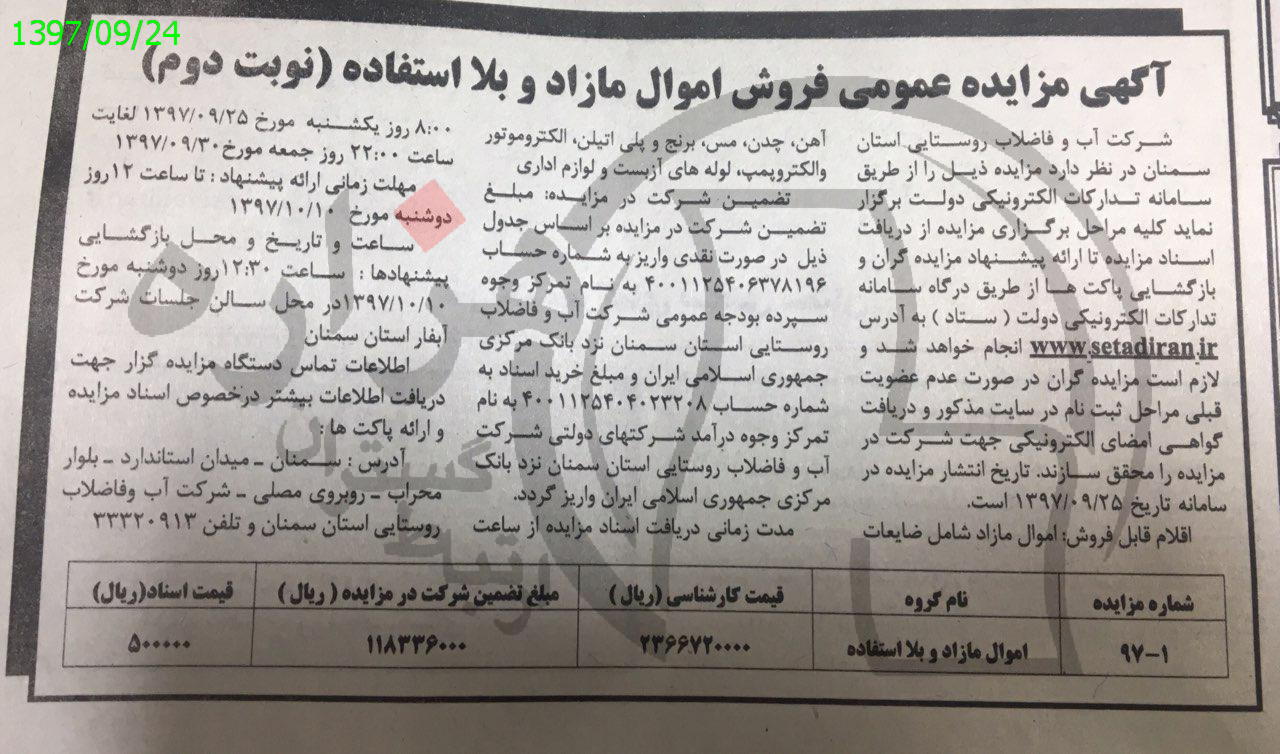 1397/09/24
آگهی مزایده عمومی فروش اموال مازاد و بلا استفاده (نوبت دوم)
شرکت آب و فاضلاب روستایی استان
سمنان در نظر دارد مزایده ذیل را از طریق
سامانه تدارکات الکترونیکی دولت برگزار
نماید کلیه مراحل برگزاری مزایده از دریافت
اسناد مزایده تا ارائه پیشنهاد مزایده گران و
بازگشایی پاکت ها از طریق درگاه سامانه
تدارکات الکترونیکی دولت ( ستاد ) به آدرس
www.setadiran.ir انجام خواهد شد و
لازم است مزایده گران در صورت عدم عضویت
قبلی مراحل ثبت نام در سایت مذکور و دریافت
گواهی امضای الکترونیکی جهت شرکت در
مزایده را محقق سازند. تاریخ انتشار مزایده در
سامانه تاریخ ۱۳۹۷/۰۹/۲۵ است.
اقلام قابل فروش: اموال مازاد شامل ضایعات
آهن، چدن، مس، برنج و پلی اتیلن، الکتروموتور
والکتروپمپ، لوله های آزبست و لوازم اداری
تضمین شرکت در مزایده: مبلغ
تضمین شرکت در مزایده بر اساس جدول
ذیل در صورت نقدی واریز به شماره حساب
۴۰۰۱۱۲۵۴۰۶۳۷۸۱۹۶ به نام تمرکز وجوه
سپرده بودجه عمومی شرکت آب و فاضلاب
روستایی استان سمنان نزد بانک مرکزی
جمهوری اسلامی ایران و مبلغ خرید اسناد به
شماره حساب ۴۰۰۱۱۲۵۴۰۴۰۲۳۲۰۸ به نام
تمرکز وجوه درآمد شرکتهای دولتی شرکت
آب و فاضلاب روستایی استان سمنان نزد بانک
مرکزی جمهوری اسلامی ایران واریز گردد.
مدت زمانی دریافت اسناد مزایده از ساعت
۸:۰۰ روز یکشنبه مورخ ۱۳۹۷/۰۹/۲۵ لغایت
ساعت ۲۲:۰۰ روز جمعه مورخ ۱۳۹۷/۰۹/۳۰
مهلت زمانی ارائه پیشنهاد : تا ساعت ۱۲روز
دوشنبه مورخ ۱۳۹۷/۱۰/۱۰
ساعت و تاریخ و محل بازگشایی
پیشنهادها : ساعت ۱۲:۳۰روز دوشنبه مورخ
۱۳۹۷/۱۰/۱۰در محل سالن جلسات شرکت
آبفار استان سمنان
اطلاعات تماس دستگاه مزایده گزار جهت
دریافت اطلاعات بیشتر درخصوص اسناد مزایده
و ارائه پاکت ها :
آدرس : سمنان ـ میدان استاندارد ـ بلوار
محراب ـ روبروی مصلی ـ شرکت آب وفاضلاب
روستایی استان سمنان و تلفن ۳۳۳۲۰۹۱۳
شماره مزایده نام گروه قیمت کارشناسی (ریال ) مبلغ تضمین شرکت در مزایده ( ریال ) قیمت اسناد(ریال)
۹۷-۱ اموال مازاد و بلا استفاده ۲۳۶۶۷۲۰۰۰۰ ۱۱۸۳۳۶۰۰۰ ۵۰۰۰۰۰
هزاره
گستران
ارتباط